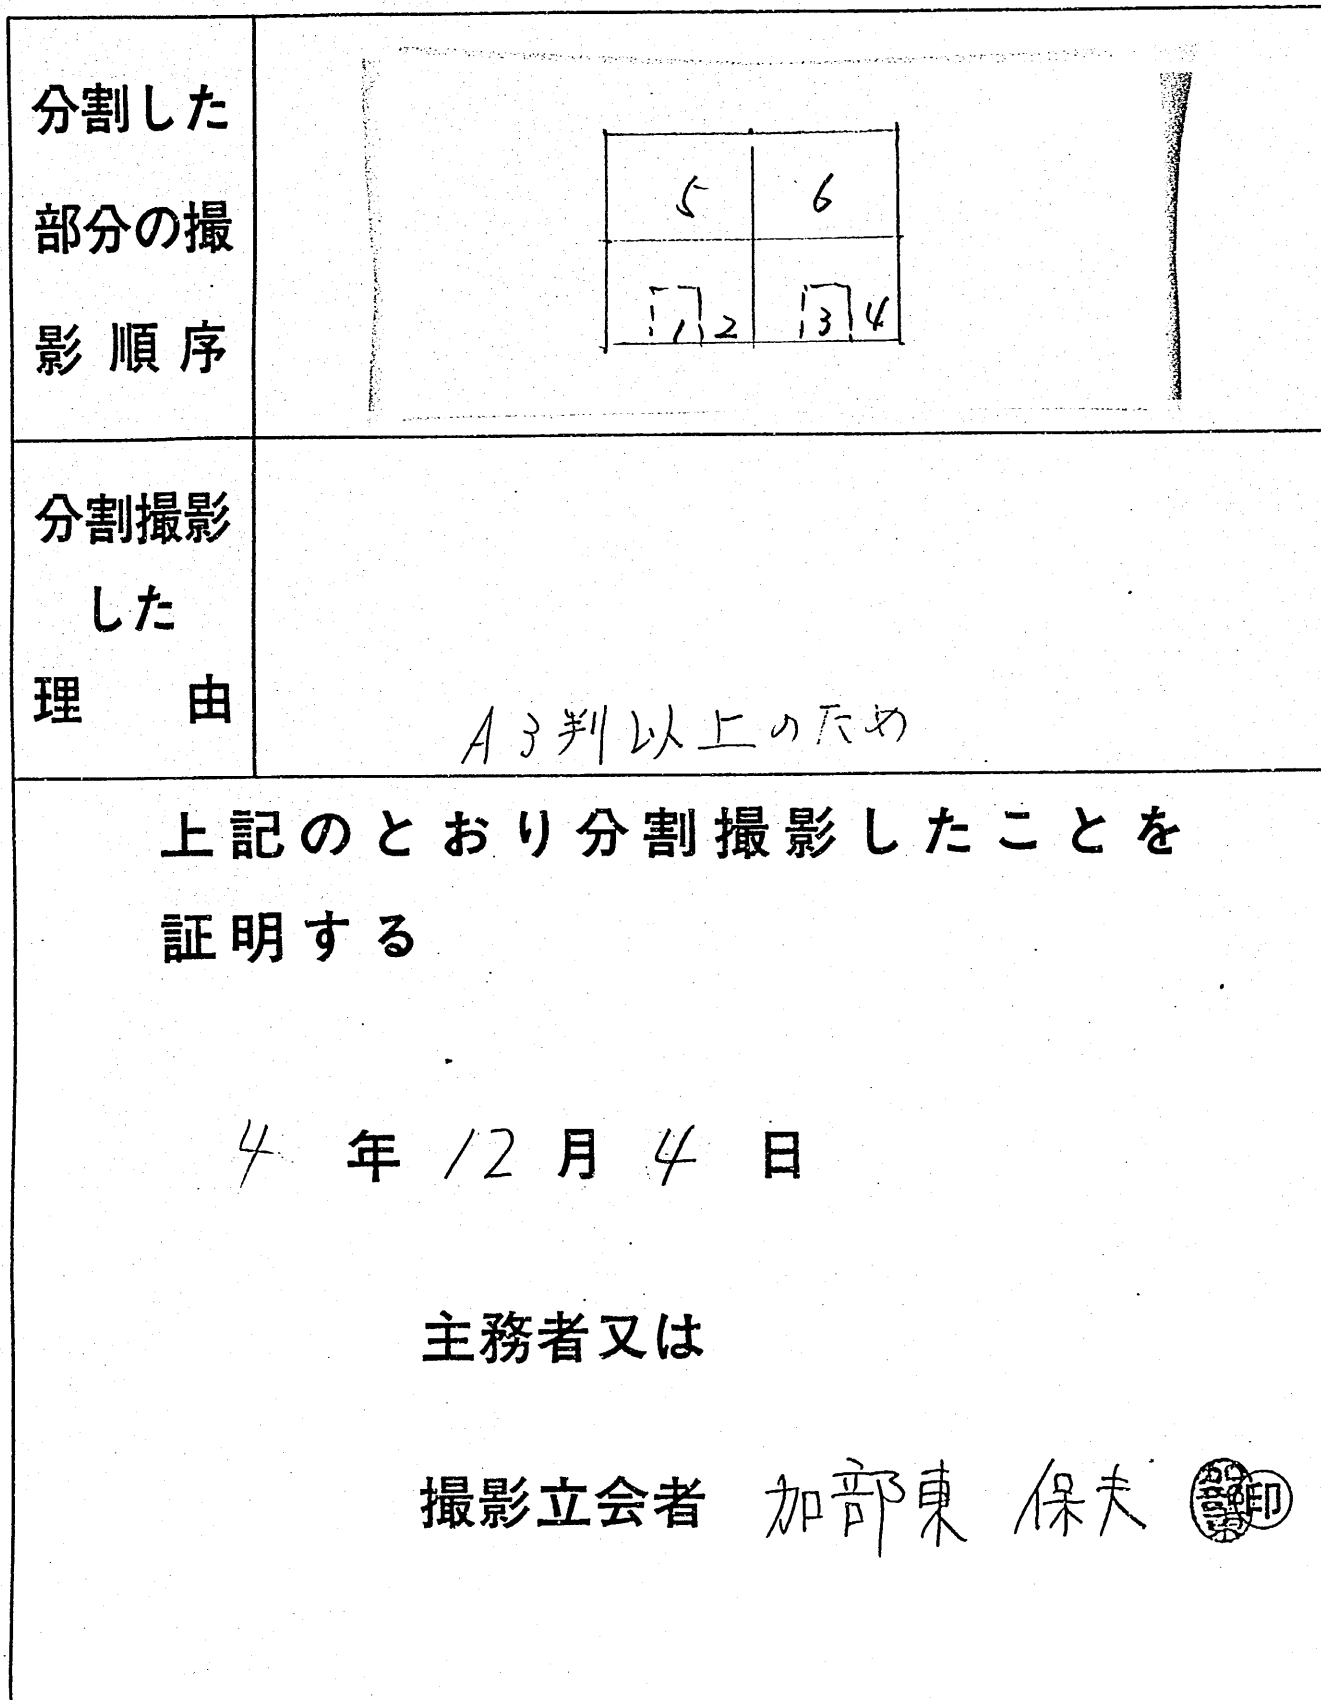 分割した
部分の撮
影順序
5 6
1 2 3 4
分割撮影
した
理由
A3判以上のため
上記のとおり分割撮影したことを
証明する
4年12月4日
主務者又は
撮影立会者 加部東 保夫 加部東 印